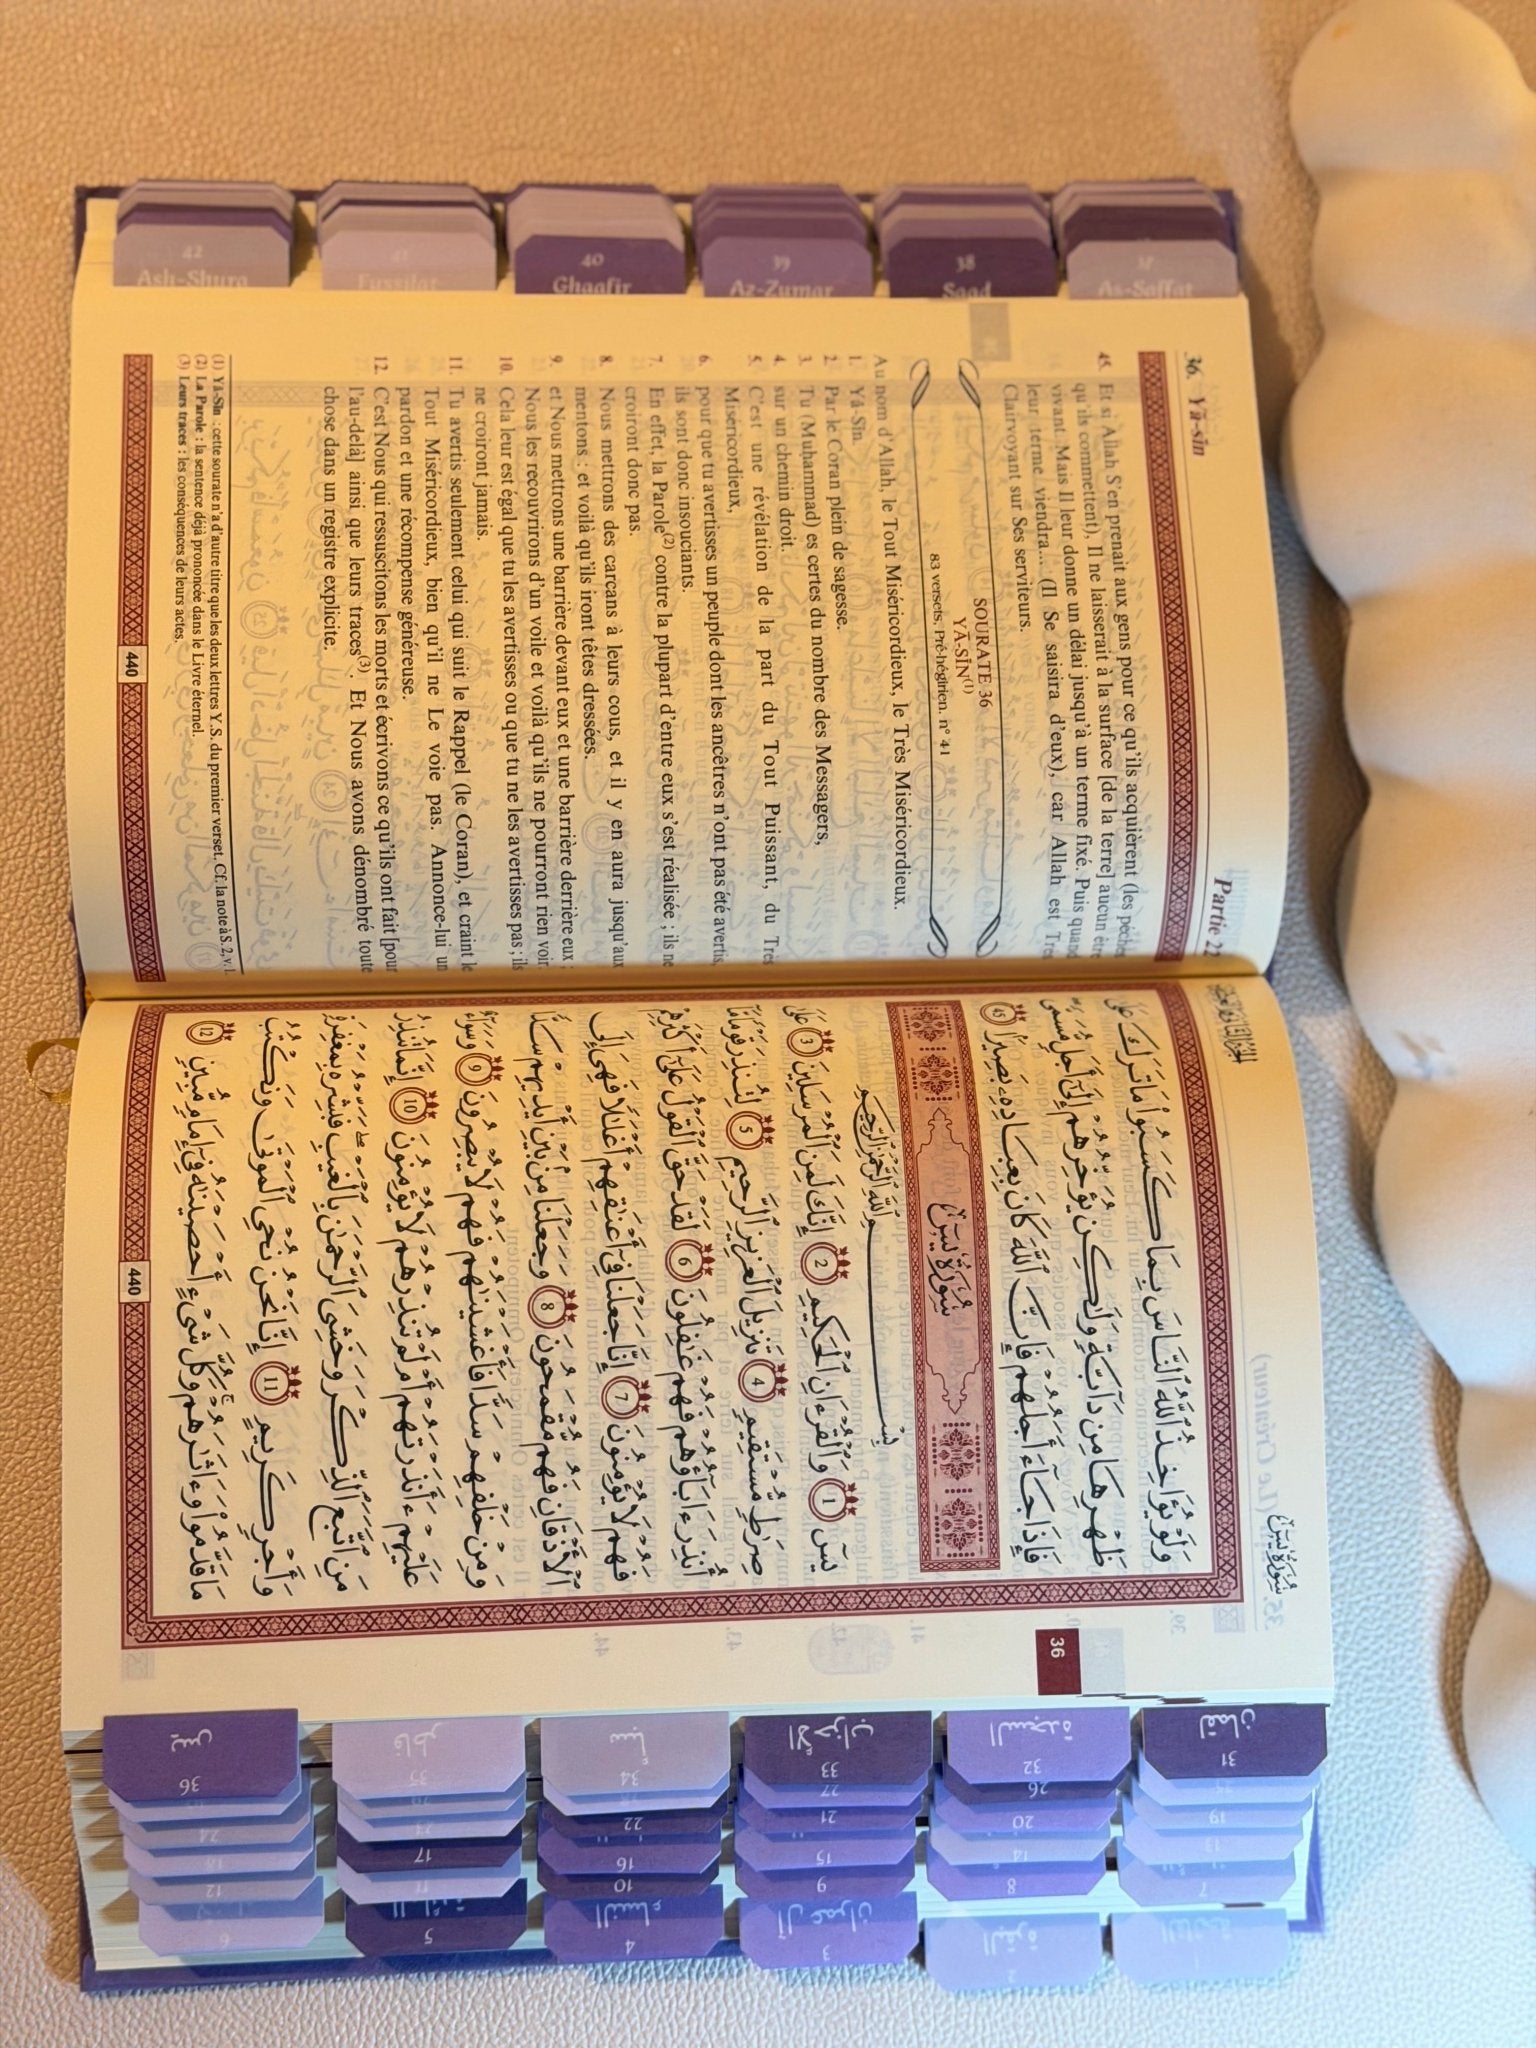 36. Yā-sīn
Partie 22
45. Et si Allah S'en prenait aux gens pour ce qu'ils acquièrent (les péchés
qu'ils commettent), Il ne laisserait à la surface [de la terre] aucun être
vivant. Mais Il leur donne un délai jusqu'à un terme fixé. Puis quand
leur terme viendra... (Il Se saisira d'eux), car Allah est Très
Clairvoyant sur Ses serviteurs.
SOURATE 36
YĀ-SĪN(1)
83 versets. Pré-hégirien. n° 41
Au nom d'Allah, le Tout Miséricordieux, le Très Miséricordieux.
1. Yā-Sīn.
2. Par le Coran plein de sagesse.
3. Tu (Muhammad) es certes du nombre des Messagers,
4. sur un chemin droit.
5. C'est une révélation de la part du Tout Puissant, du Très
Miséricordieux,
6. pour que tu avertisses un peuple dont les ancêtres n'ont pas été avertis,
ils sont donc insouciants.
7. En effet, la Parole(2) contre la plupart d'entre eux s'est réalisée ; ils ne
croiront donc pas.
8. Nous mettrons des carcans à leurs cous, et il y en aura jusqu'aux
mentons : et voilà qu'ils iront têtes dressées.
9. et Nous mettrons une barrière devant eux et une barrière derrière eux ;
Nous les recouvrirons d'un voile et voilà qu'ils ne pourront rien voir.
10. Cela leur est égal que tu les avertisses ou que tu ne les avertisses pas ; ils
ne croiront jamais.
11. Tu avertis seulement celui qui suit le Rappel (le Coran), et craint le
Tout Miséricordieux, bien qu'il ne Le voie pas. Annonce-lui un
pardon et une récompense généreuse.
12. C'est Nous qui ressuscitons les morts et écrivons ce qu'ils ont fait [pour
l'au-delà] ainsi que leurs traces(3). Et Nous avons dénombré toute
chose dans un registre explicite.
(1) Yā-Sīn : cette sourate n'a d'autre titre que les deux lettres Y.S. du premier verset. Cf. la note à S. 2, v. 1.
(2) La Parole : la sentence déjà prononcée dans le Livre éternel.
(3) Leurs traces : les conséquences de leurs actes.
440
سُورَةُ يسٓ
وَلَوْ يُؤَاخِذُ ٱللَّهُ ٱلنَّاسَ بِمَا كَسَبُوا۟ مَا تَرَكَ عَلَىٰ
ظَهْرِهَا مِن دَآبَّةٍ وَلَٰكِن يُؤَخِّرُهُمْ إِلَىٰٓ أَجَلٍ مُّسَمًّى
فَإِذَا جَآءَ أَجَلُهُمْ فَإِنَّ ٱللَّهَ كَانَ بِعِبَادِهِۦ بَصِيرًۢا 45
سُورَةُ يسٓ
بِسْمِ ٱللَّهِ ٱلرَّحْمَٰنِ ٱلرَّحِيمِ
يسٓ 1 وَٱلْقُرْءَانِ ٱلْحَكِيمِ 2 إِنَّكَ لَمِنَ ٱلْمُرْسَلِينَ 3 عَلَىٰ
صِرَٰطٍ مُّسْتَقِيمٍ 4 تَنزِيلَ ٱلْعَزِيزِ ٱلرَّحِيمِ 5 لِتُنذِرَ قَوْمًا مَّآ
أُنذِرَ ءَابَآؤُهُمْ فَهُمْ غَٰفِلُونَ 6 لَقَدْ حَقَّ ٱلْقَوْلُ عَلَىٰٓ أَكْثَرِهِمْ
فَهُمْ لَا يُؤْمِنُونَ 7 إِنَّا جَعَلْنَا فِىٓ أَعْنَٰقِهِمْ أَغْلَٰلًا فَهِىَ إِلَى
ٱلْأَذْقَانِ فَهُم مُّقْمَحُونَ 8 وَجَعَلْنَا مِنۢ بَيْنِ أَيْدِيهِمْ سَدًّا
وَمِنْ خَلْفِهِمْ سَدًّا فَأَغْشَيْنَٰهُمْ فَهُمْ لَا يُبْصِرُونَ 9 وَسَوَآءٌ
عَلَيْهِمْ ءَأَنذَرْتَهُمْ أَمْ لَمْ تُنذِرْهُمْ لَا يُؤْمِنُونَ 10 إِنَّمَا تُنذِرُ
مَنِ ٱتَّبَعَ ٱلذِّكْرَ وَخَشِىَ ٱلرَّحْمَٰنَ بِٱلْغَيْبِ فَبَشِّرْهُ بِمَغْفِرَةٍ
وَأَجْرٍ كَرِيمٍ 11 إِنَّا نَحْنُ نُحْىِ ٱلْمَوْتَىٰ وَنَكْتُبُ
مَا قَدَّمُوا۟ وَءَاثَٰرَهُمْ وَكُلَّ شَىْءٍ أَحْصَيْنَٰهُ فِىٓ إِمَامٍ مُّبِينٍ 12
440
36
37 As-Saffat
38 Saad
39 Az-Zumar
40 Ghaafir
41 Fussilat
42 Ash-Shura
31 لقمان
32 السجدة
33 الأحزاب
34 سبأ
35 فاطر
36 يس
26
27
22
19
20
21
13
14
15
16
17
7
8
9
10
11
12
18
24
البقرة
3 آل عمران
4 النساء
5 المائدة
6